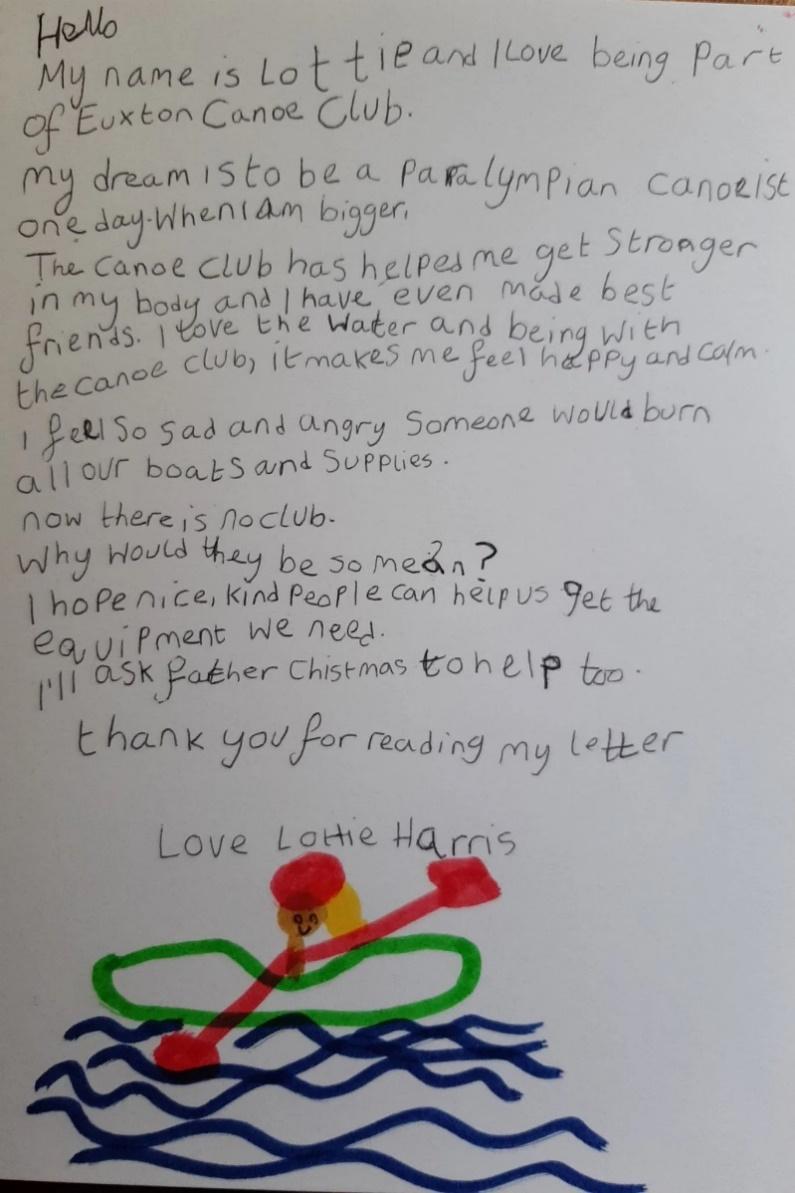 Hello
My name is Lottie and I Love being Part
of Euxton Canoe Club.
My dream is to be a Paralympian canoeist
one day. When I am bigger.
The canoe club has helped me get Stronger
in my body and I have even made best
friends. I love the water and being with
the canoe club, it makes me feel happy and calm.
I feel so sad and angry Someone would burn
all our boats and Supplies.
now there is no club.
Why would they be so mean?
I hope nice, kind People can help us get the
equipment we need.
I'll ask father Chistmas to help too.
thank you for reading my letter
Love Lottie Harris